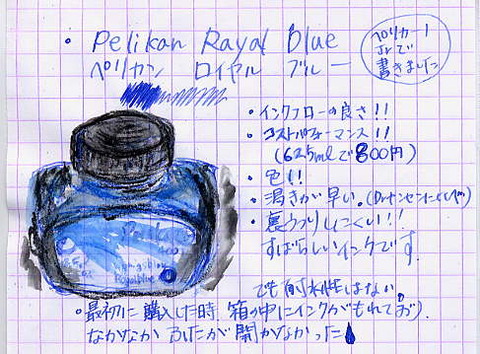 ・Pelikan Royal Blue
ペリカン ロイヤル ブルー
ペリカーノ
Jrで
書きました
・インクフローの良さ!!
・コストパフォーマンス!!
(62.5mlで800円)
・色!!
・渇きが早い。
・裏うつりしにくい!!
すばらしいインクです。
でも耐水性はない。
・最初に購入した時、箱の中にインクがもれており、
なかなかふたが開かなかった